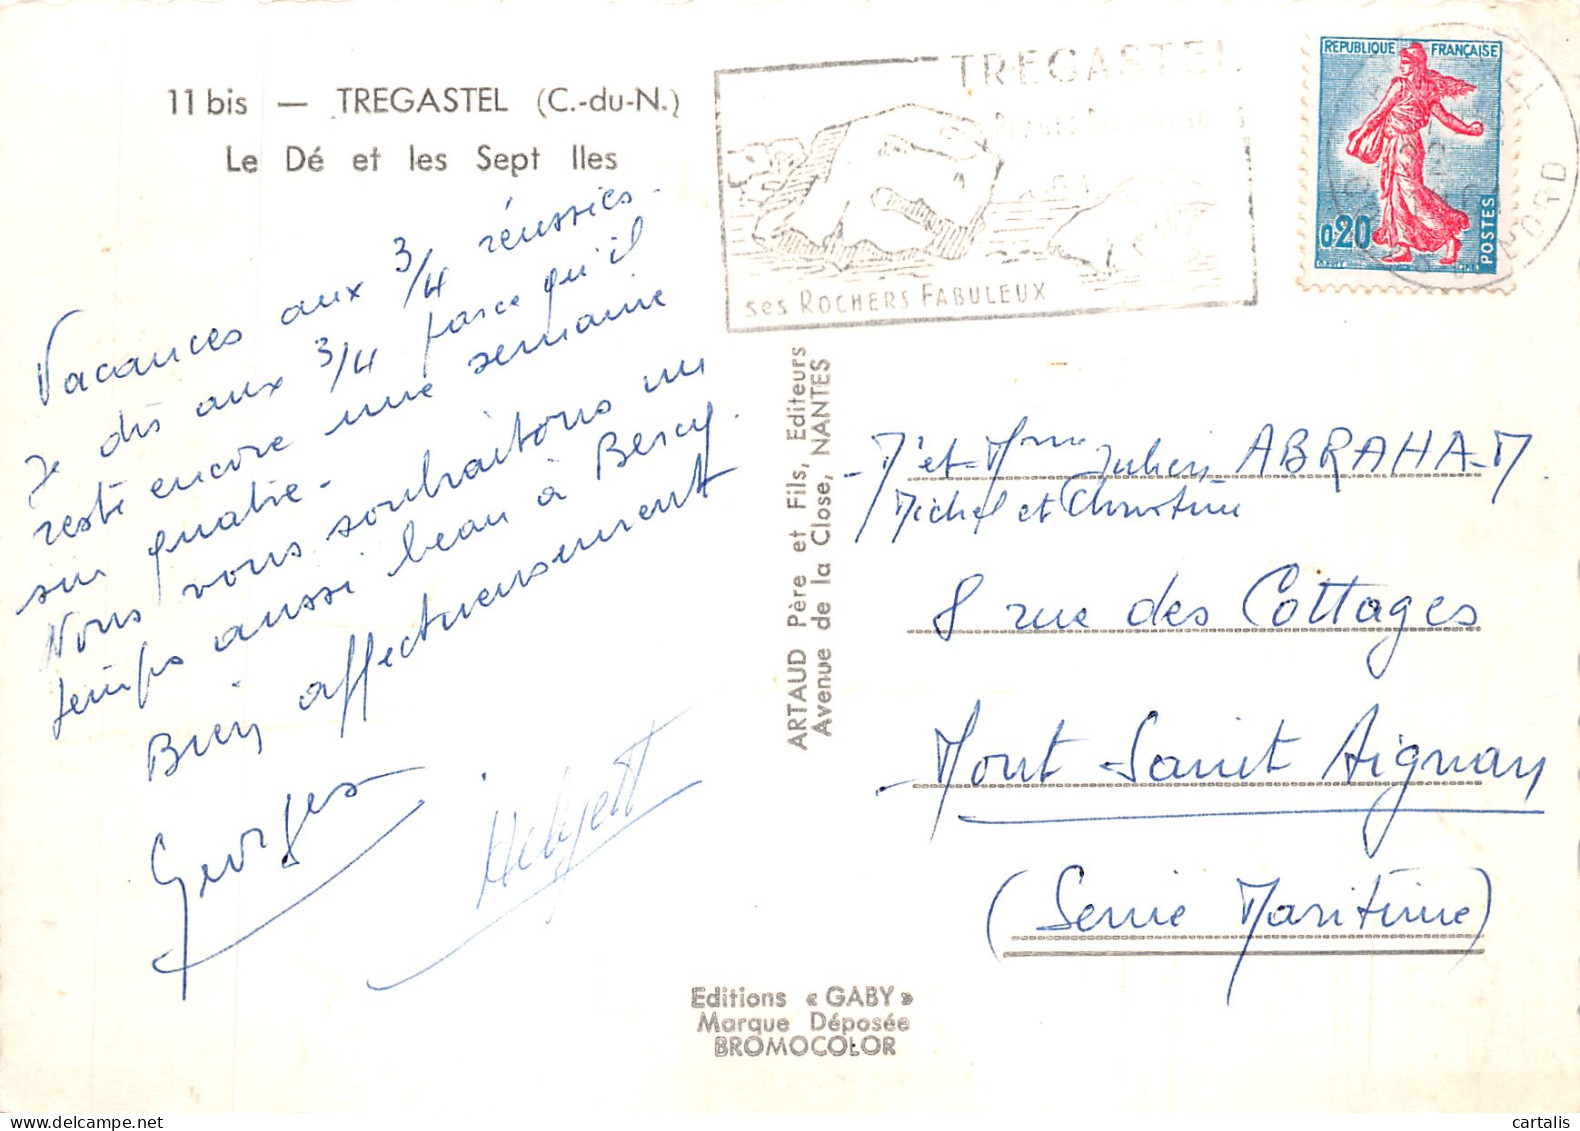 11 bis — TREGASTEL (C.-du-N.)
Le Dé et les Sept Iles
Vacances aux 3/4 réussies -
Je dis aux 3/4 parce qu'il
reste encore une semaine
sur quatre -
Nous vous souhaitons un
temps aussi beau à Bercy.
Bien affectueusement
Georges
Helyett
TREGASTEL
ses ROCHERS FABULEUX
REPUBLIQUE FRANÇAISE
0,20
POSTES
NORD
ARTAUD Père et Fils, Editeurs
Avenue de la Close, NANTES
Mr et Mme Julien ABRAHAM
Michel et Christine
8 rue des Cottages
Mont Saint Aignan
(Seine Maritime)
Editions « GABY »
Marque Déposée
BROMOCOLOR
delcampe.net
cartalis